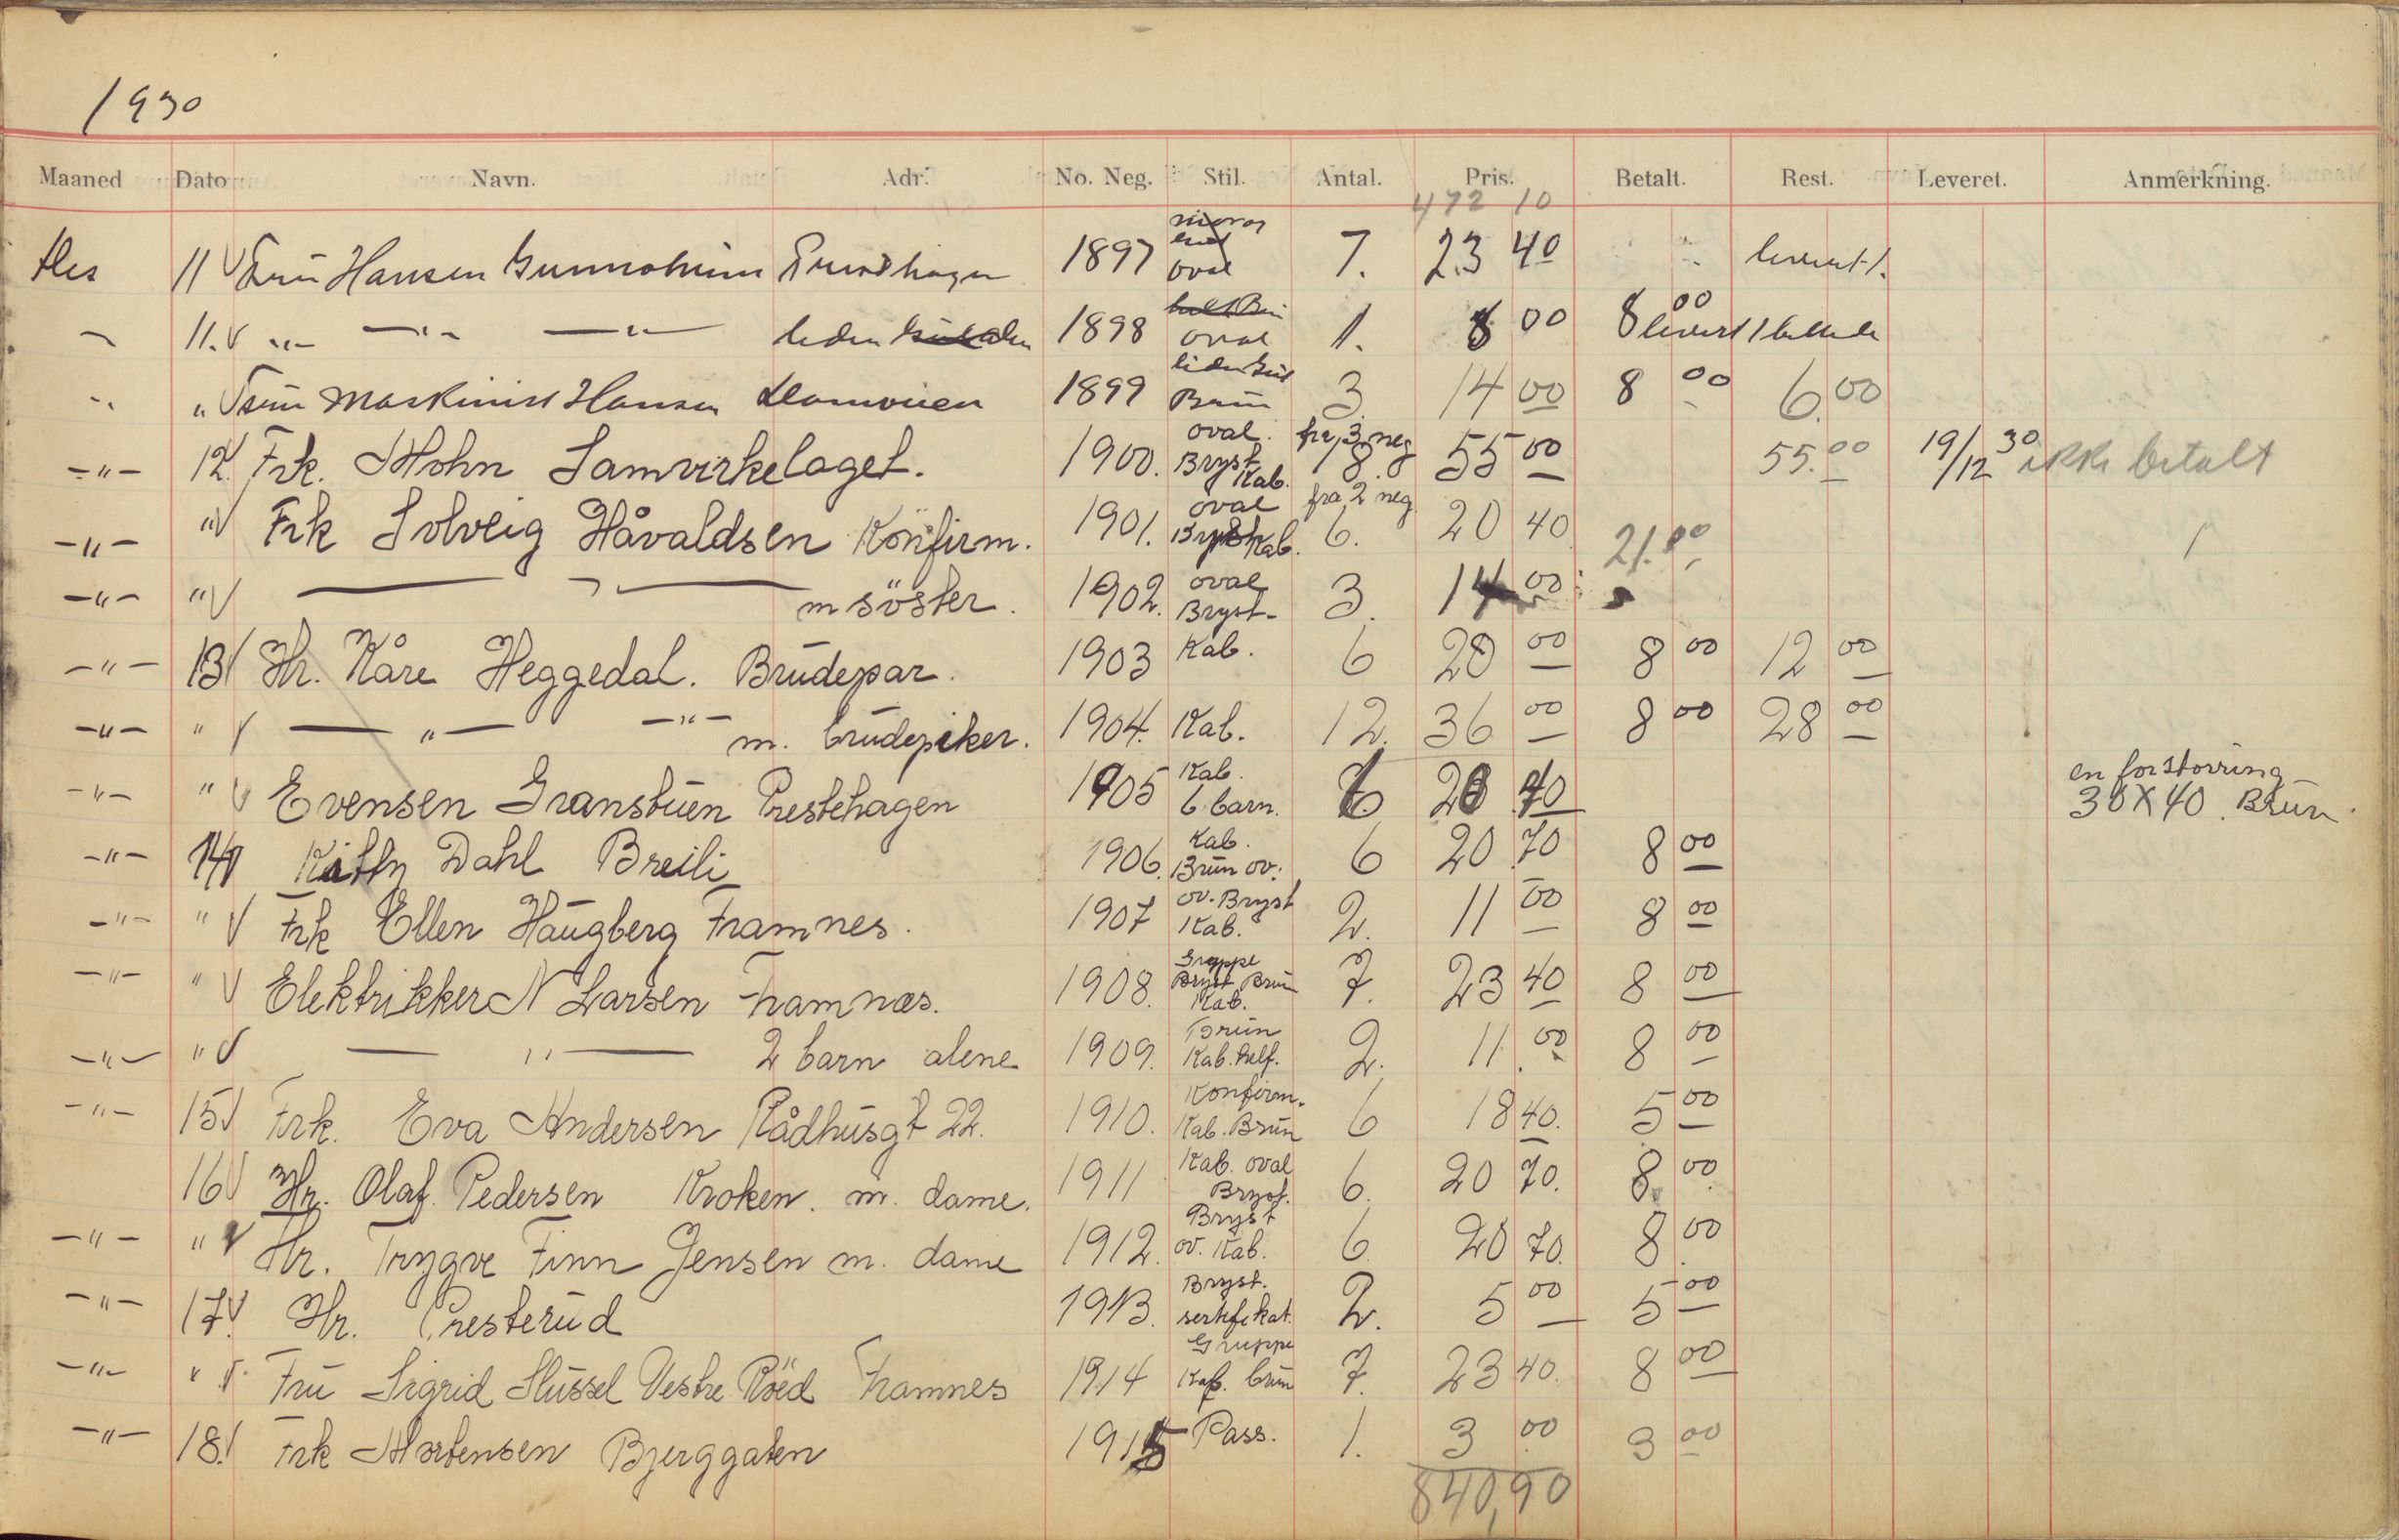 1930
Maaned Dato Navn. Adr. No. Neg. Stil. Antal. Pris. Betalt. Rest. Leveret. Anmerkning.
472 10
Des 11 V Fru Hansen 1897 oval 7. 23 40 levert.
11. V „ — „ — — „ — 1898 oval 1. 8 00 8 00 levert
„ V Fru Maskinist Hansen 1899 Brun 3. 14 00 8 00 6.00
— „ — 12 V Frk. Mohn Samvirkelaget. 1900. oval. Bryst Kab. fra 3 neg 18. 55 00 55.00 19/12 30 ikke betalt
— „ — „ V Frk Solveig Håvaldsen Konfirm. 1901. oval Bryst Kab. fra 2 neg 6. 20 40 21.00
— „ — „ V — „ — m söster. 1902. oval Bryst- 3. 14 00
— „ — 13 V Hr. Kåre Heggedal. Brudepar. 1903 Kab. 6 20 00 8 00 12 00
— „ — „ V — „ — — „ — m. brudepiker. 1904. Kab. 12. 36 00 8 00 28 00
— „ — „ V Evensen Granstuen Prestehagen 1905 Kab. 6 barn. 6 20 40 en forstörring 30 X 40. Brun.
— „ — 14 V Kitty Dahl Breili 1906. Kab. Brun ov. 6 20 70 8 00
— „ — „ V Frk Ellen Haugberg Framnes. 1907 ov. Bryst Kab. 2. 11 00 8 00
— „ — „ V Elektrikker N Larsen Framnæs. 1908. Gruppe Bryst Brun Kab. 7. 23 40 8 00
— „ — „ V — „ — 2 barn alene 1909. Brun Kab. helf. 2. 11. 00 8 00
— „ — 15 V Frk. Eva Andersen Rådhusgt 22. 1910. Konfirm. Kab. Brun 6 18 40. 5 00
16 V Hr. Olaf Pedersen Kroken. m. dame. 1911 Kab. oval Bryst. 6. 20 70. 8. 00
— „ — „ V Hr. Trygve Finn Jensen m. dame 1912. Bryst ov. Kab. 6. 20 70. 8. 00
— „ — 17. V Hr. Presterud 1913. Bryst. sertifikat. 2. 5 00 5 00
— „ — „ V. Fru Sigrid Slussel Vestre Röed Framnes 1914 Gruppe Kab. brun 7. 23 40. 8 00
— „ — 18. V Frk Mortensen Bjerggaten 1915 Pass. 1. 3 00 3 00
840,90